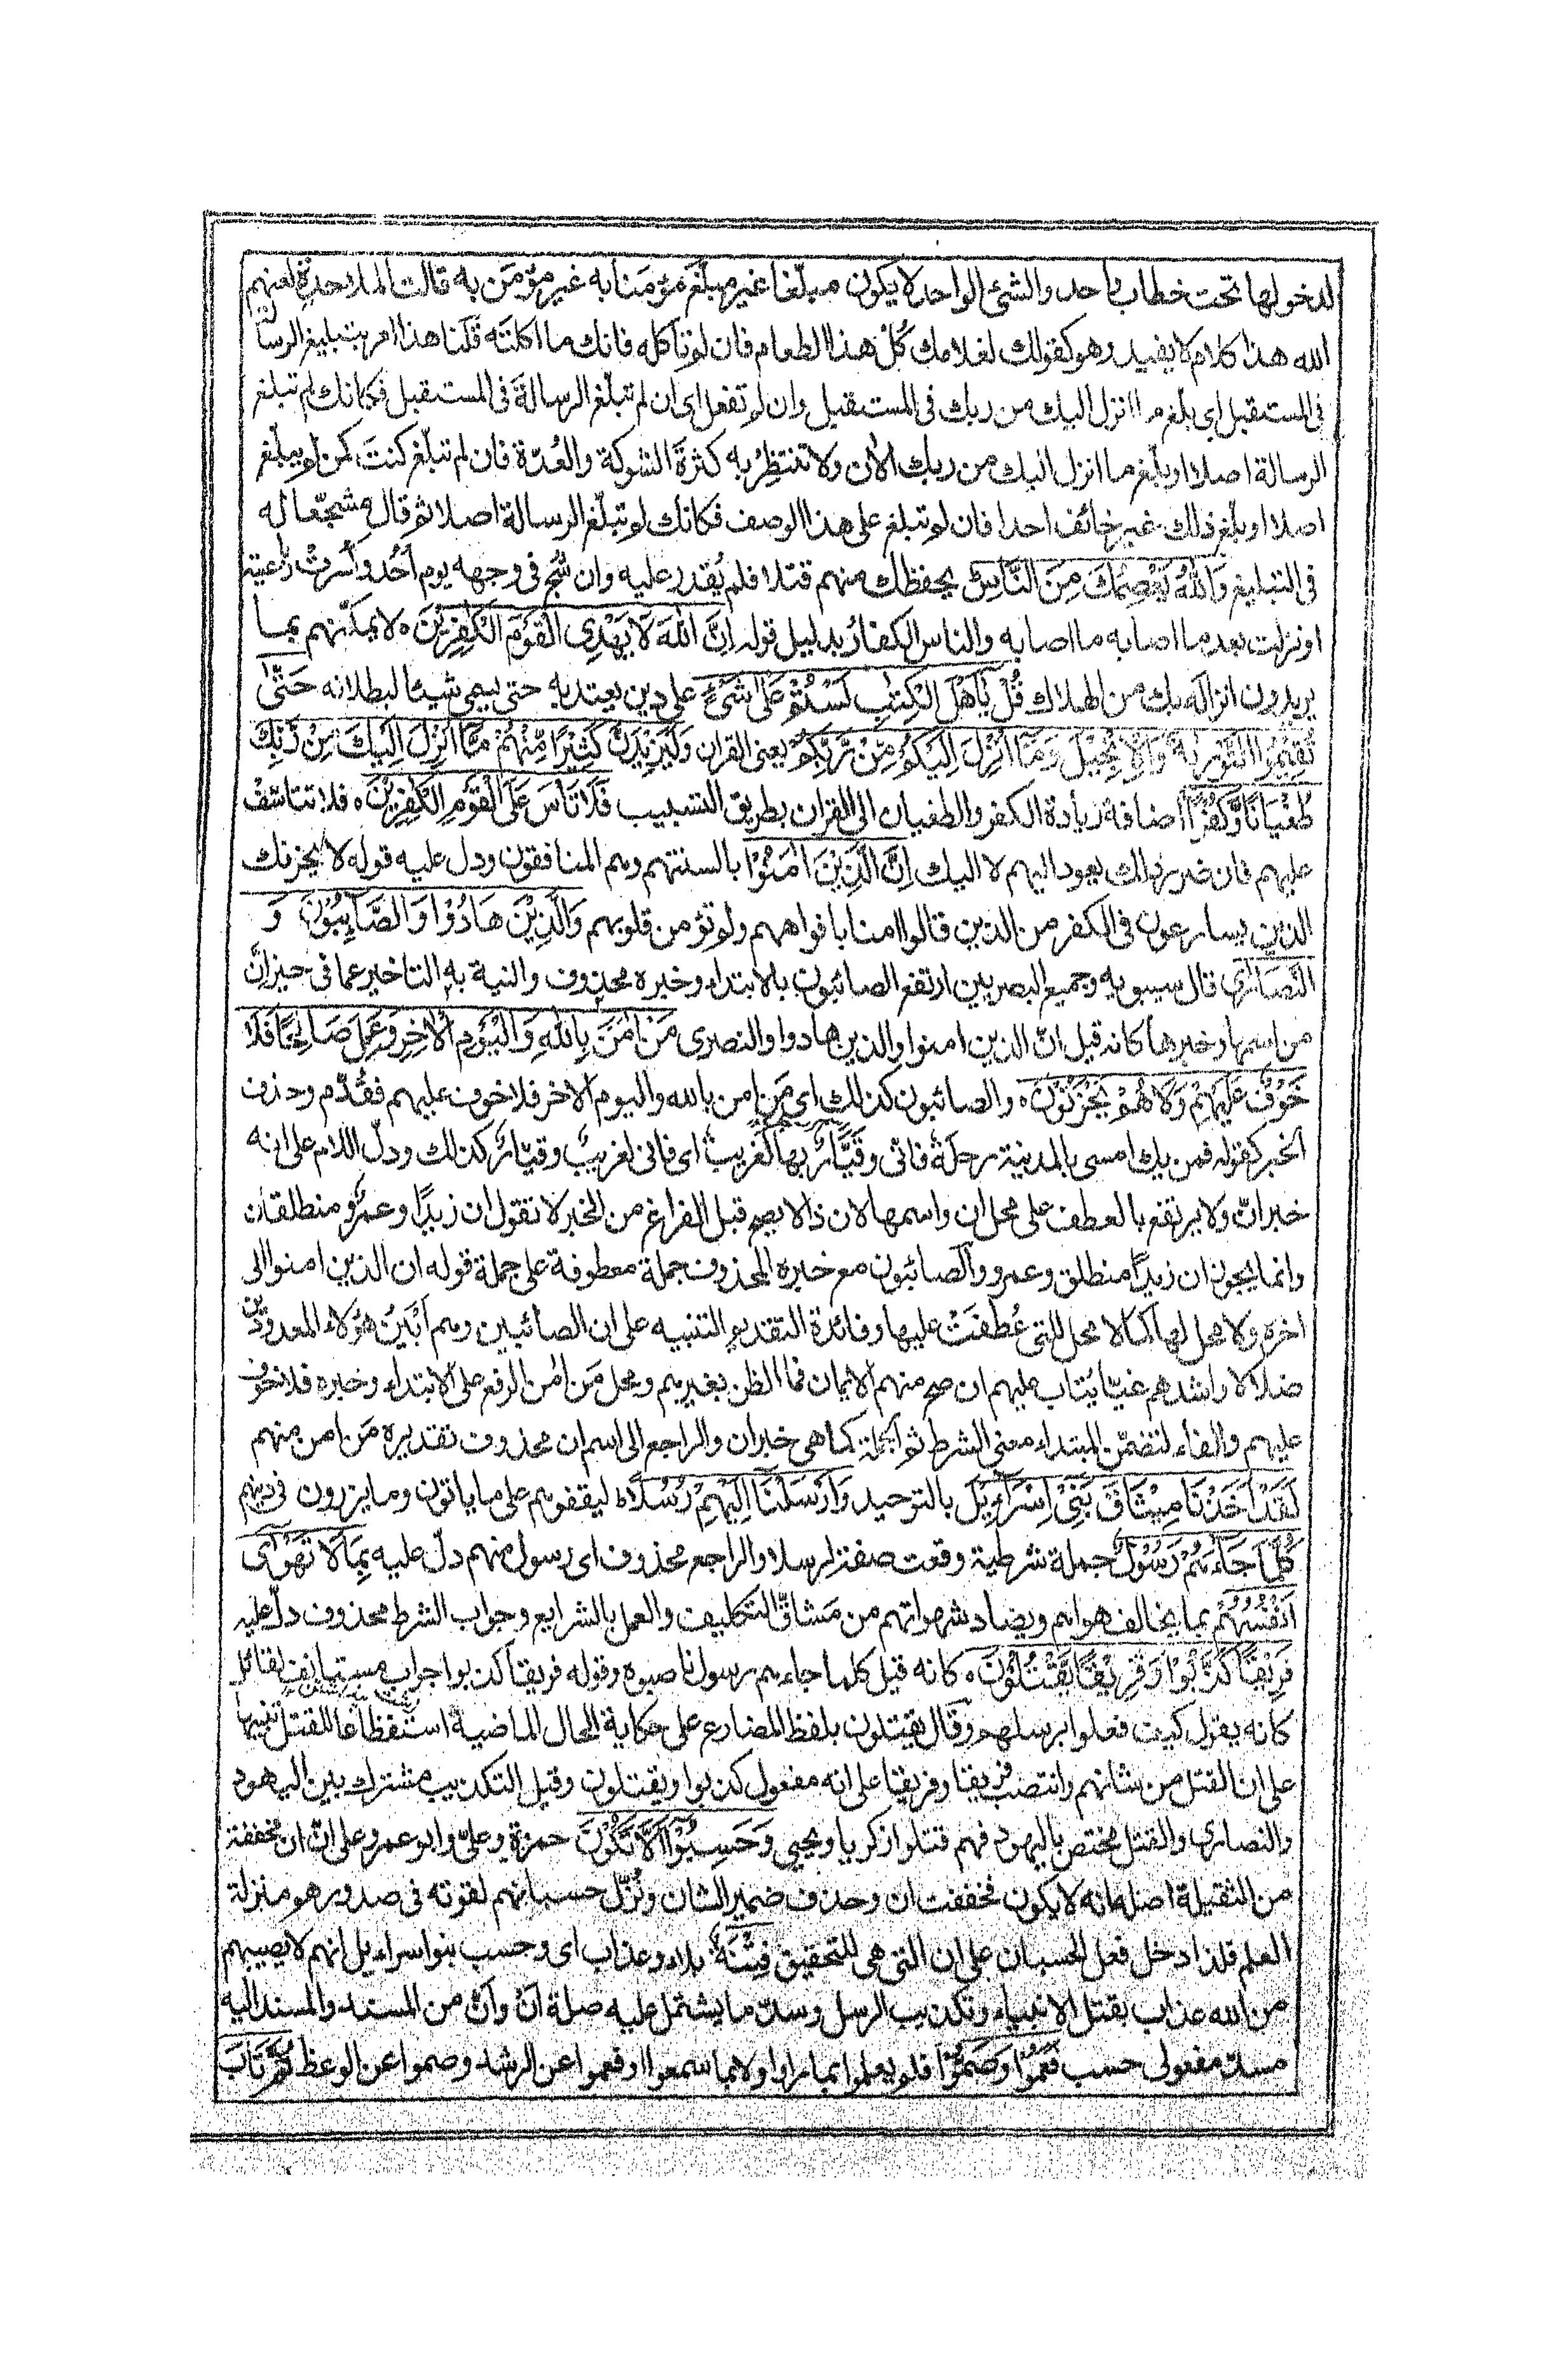 لدخولها تحت خطاب واحد والشئ الواحد لا يكون مبلّغا غير مبلّغ مؤمَنا به غير مؤمَن به قالت الملاحدة لعنهم
الله هذا كلام لا يفيد وهو كقولك لغلامك كُلْ هذا الطعام فان لم تأكله فانك ما اكلتَه قلنا هذا امر بتبليغ الرسالة
فى المستقبل اى بلّغ ما انزل اليك من ربك فى المستقبل وان لم تفعل اى ان لم تبلّغ الرسالةَ فى المستقبل فكانك لم تبلغ
الرسالة اصلا او بلّغ ما انزل اليك من ربك الأن ولا تنتظِرْ به كثرةَ الشوكة والعُدّة فان لم تبلّغ كنتَ كمن لم يبلّغ
اصلا او بلّغ ذلك غير خائف احدا فان لم تبلغ على هذا الوصف فكانك لم تبلّغ الرسالة اصلا ثم قال مشجّعا له
فى التبليغ وَاللّٰهُ يَعْصِمُكَ مِنَ النَّاسِ يحفظك منهم قتلا فلم يُقدر عليه وان شُجّ فى وجهه يوم اُحُد وكُسرتْ رباعيته
او نزلت بعد ما اصابه ما اصابه والناس الكفارُ بدليل قوله اِنَّ اللّٰهَ لَا يَهْدِى الْقَوْمَ الْكٰفِرِيْنَ ه لا يمكّنهم بما
يريدون انزاله بك من الهلاك قُلْ يٰاَهْلَ الْكِتٰبِ لَسْتُمْ عَلٰى شَىْءٍ على دين يعتد به حتى يسمى شيئا لبطلانه حَتّٰى
تُقِيْمُوا التَّوْرٰىةَ وَالْاِنْجِيْلَ وَمَا اُنْزِلَ اِلَيْكُمْ مِّنْ رَّبِّكُمْ يعنى القران وَلَيَزِيْدَنَّ كَثِيْرًا مِّنْهُمْ مَّا اُنْزِلَ اِلَيْكَ مِنْ رَّبِّكَ
طُغْيَانًا وَّكُفْرًا اضافة زيادة الكفر والطغيان الى القران بطريق التسبيب فَلَا تَاْسَ عَلَى الْقَوْمِ الْكٰفِرِيْنَ ه فلا تتاسّفْ
عليهم فان ضرر ذلك يعود اليهم لا اليك اِنَّ الَّذِيْنَ اٰمَنُوْا بالسنتهم وهم المنافقون ودل عليه قوله لا يحزنك
الذين يسارعون فى الكفر من الذين قالوا امنا بافواههم ولم تؤمن قلوبهم وَالَّذِيْنَ هَادُوْا وَالصَّابِئُوْنَ وَ
النَّصَارٰى قال سيبويه وجميع البصريين ارتفع الصائبون بالابتداء وخبره محذوف والنية به التاخير عما فى حيز انّ
من اسمها وخبرها كانه قيل انّ الذين امنوا والذين هادوا والنصرى مَنْ اٰمَنَ بِاللّٰهِ وَالْيَوْمِ الْاٰخِرِ وَعَمِلَ صَالِحًا فَلَا
خَوْفٌ عَلَيْهِمْ وَلَا هُمْ يَحْزَنُوْنَ ه والصائبون كذلك اى مَن امن بالله واليوم الاخر فلا خوف عليهم فقُدّم وحذف
الخبر كقوله فمن يك امسى بالمدينة رحلَهُ فانّى وقَيَّارٌ بها لَغريبٌ اى فانى لغريبٌ وقيّارٌ كذلك ودلّ اللام على انه
خبر انّ ولا يرتفع بالعطف على محل ان واسمها لان ذا لا يصح قبل الفراغ من الخبر لا تقول ان زيدًا وعمرٌو منطلقان
وانما يجوز ان زيدًا منطلق وعمرو والصائبون مع خبره المحذوف جملة معطوفة على جملة قوله ان الذين امنوا الى
اخره ولا محل لها كما لا محل للتى عُطفَتْ عليها وفائدة التقديم التنبيه على ان الصائبين وهم اَبْيَنُ هؤلاء المعدودين
ضلالا واشدهم غيّا يُتاب عليهم ان صح منهم الايمان فما الظن بغيرهم ومحل مَن اٰمن الرفع على الابتداء وخبره فلا خوف
عليهم والفاء لتضمّن المبتداء معنى الشرط ثم الجملة كما هى خبر ان والراجع الى اسم ان محذوف تقديره مَن امن منهم
لَقَدْ اَخَذْنَا مِيْثَاقَ بَنِىْ اِسْرَاءِيْلَ بالتوحيد وَاَرْسَلْنَا اِلَيْهِمْ رُسُلًا ه ليقفوهم على ما ياتون وما يزرون فى دينهم
كُلَّمَا جَاءَهُمْ رَسُوْلٌ جملة شرطية وقعت صفة لرسلا والراجع محذوف اى رسول منهم دلّ عليه بِمَا لَا تَهْوٰى
اَنْفُسُهُمْ بما يخالف هواهم ويضاد شهواتهم من مَشاقّ التكليف والعمل بالشرايع وجواب الشرط محذوف دلّ عليه
فَرِيْقًا كَذَّبُوْا وَفَرِيْقًا يَّقْتُلُوْنَ ه كانه قيل كلما جاءهم رسول ناصبوه وقوله فريقا كذبوا جواب مستانف لقائل
كانه يقول كيف فعلوا برسلهم وقال يقتلون بلفظ المضارع على حكاية الحال الماضية استفظاعا للقتل تنبيها
على ان القتل من شانهم وانتصب فريقا وفريقا على انه مفعول كذبوا ويقتلون وقيل التكذيب مشترك بين اليهود
والنصارى والقتل مختص باليهود فهم قتلوا زكريا ويحيى وَحَسِبُوْا اَلَّا تَكُوْنَ حمزة وعلىّ وابو عمرو على انّ ان مخففة
من الثقيلة اصله انه لا يكون فخففت ان وحذف ضمير الشان ونُزّل حسبانهم لقوته فى صدورهم منزلة
العلم فلذا دخل فعل الحسبان على ان التى هى للتحقيق فِتْنَةٌ بلاء وعذاب اى وحسب بنو اسراءيل انهم لا يصيبهم
من الله عذاب بقتل الانبياء وتكذيب الرسل وسدّ ما يشتمل عليه صلة اَنْ واَنّ من المسند والمسند اليه
مسدّ مفعولى حسب فَعَمُوْا وَصَمُّوْا فلم يعملوا بما راوا ولا بما سمعوا او فعموا عن الرشد وصموا عن الوعظ ثُمَّ تَابَ